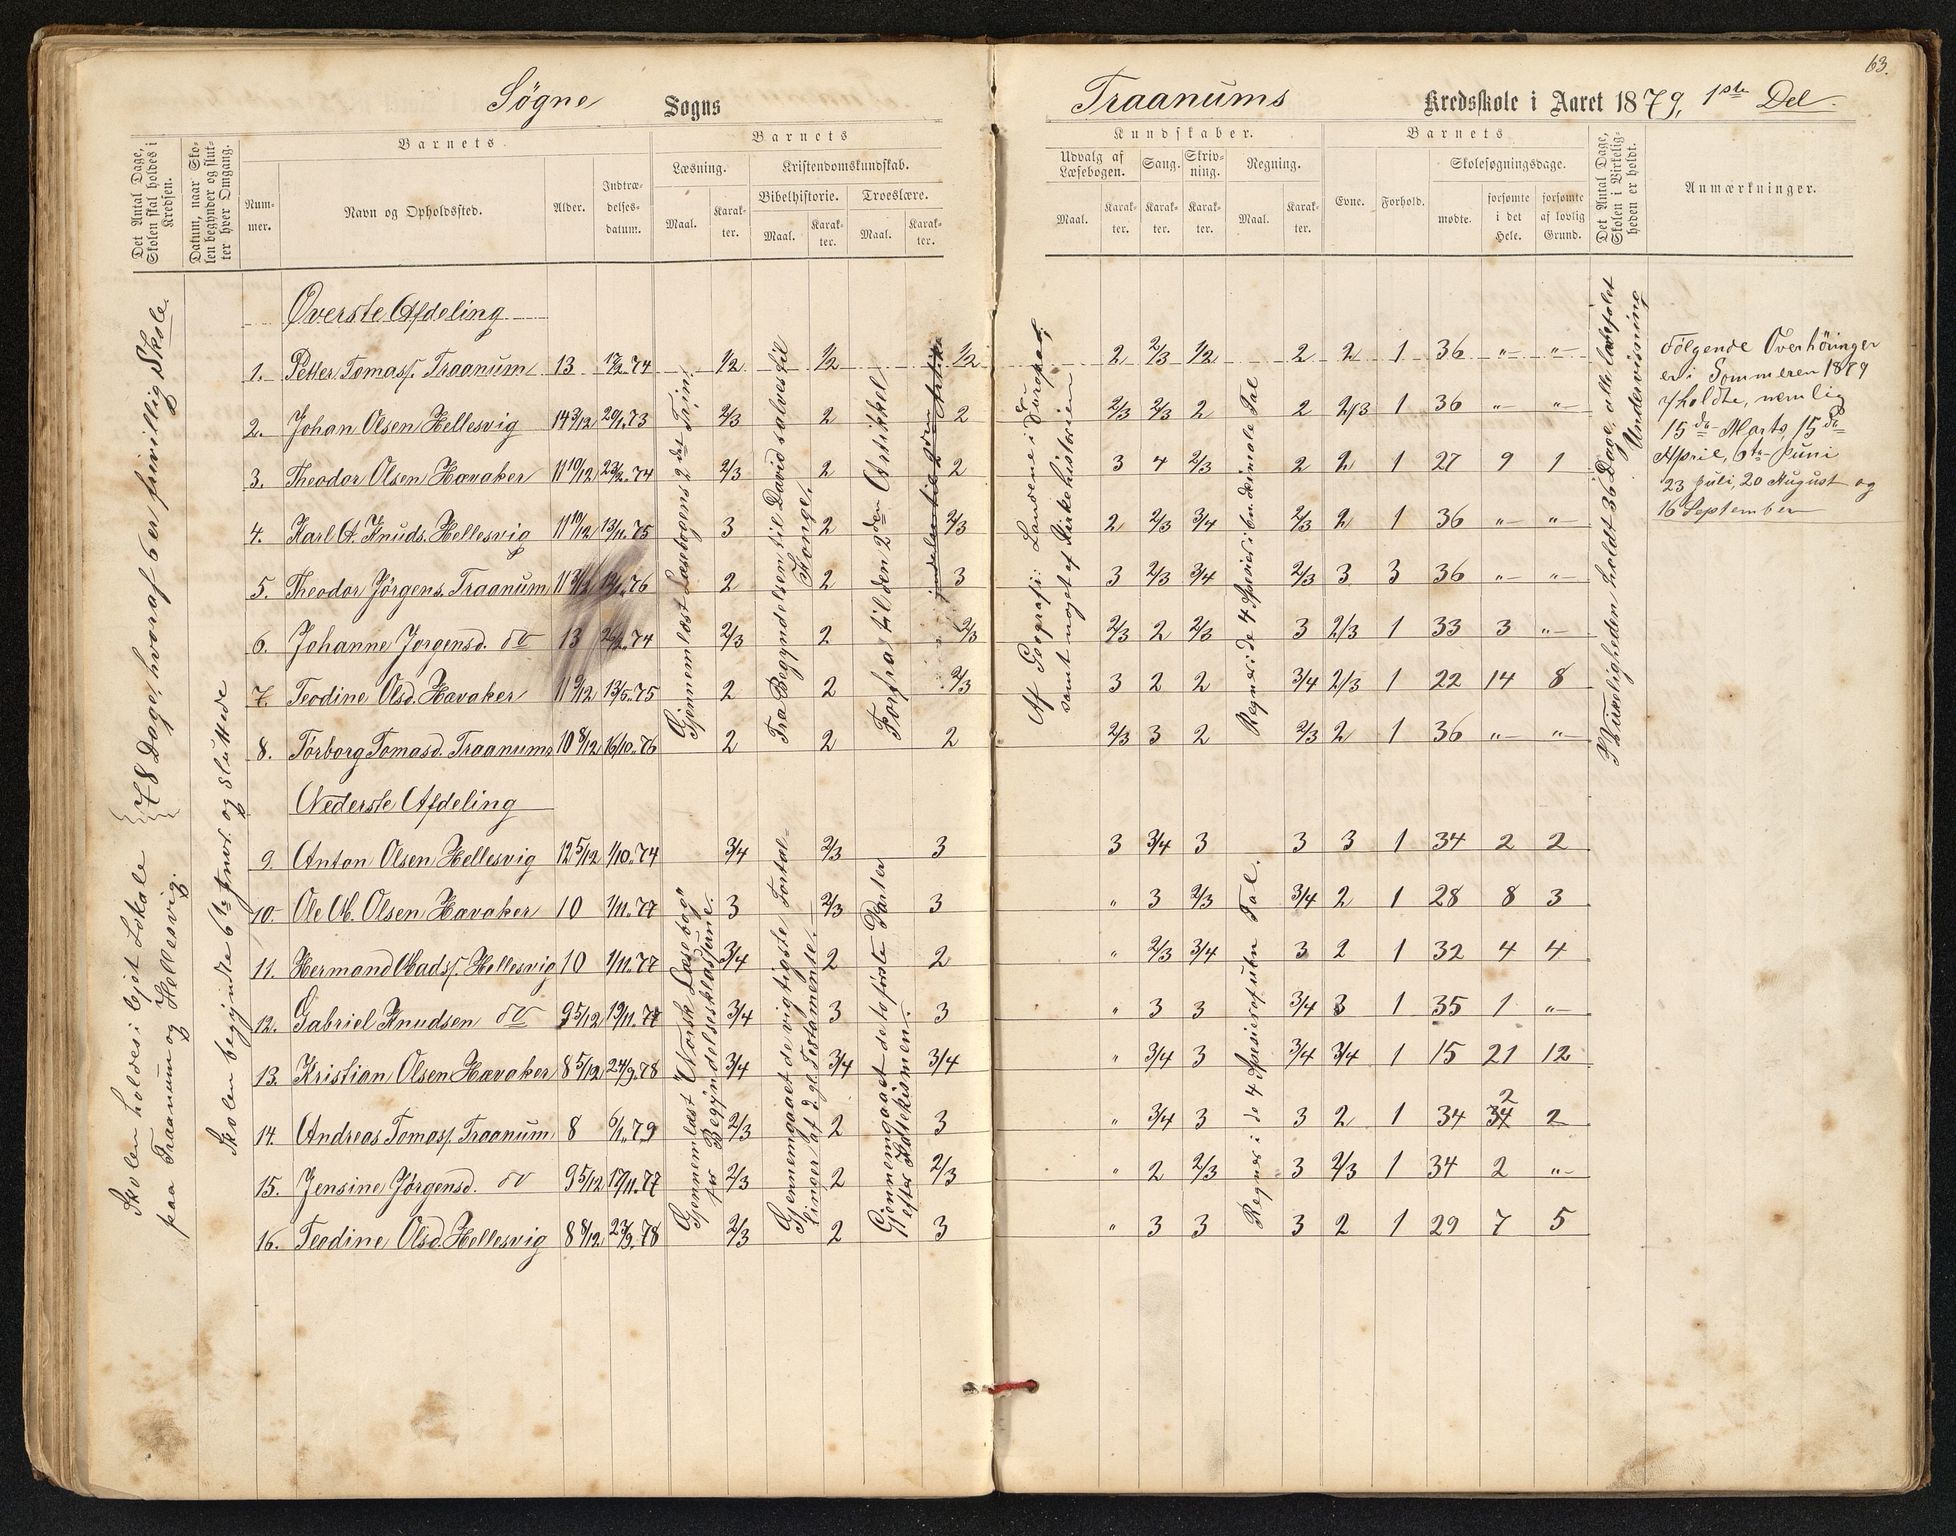 63.
Søgne Sogns
Traanums Kredsskole i Aaret 1879, 1ste Del.
Det Antal Dage, Skolen skal holdes i Kredsen.
Datum, naar Skolen begynder og slutter hver Omgang.
Barnets
Nummer.
Navn og Opholdssted.
Alder.
Indtrædelsesdatum.
Barnets
Læsning.
Maal.
Karakter.
Kristendomskundskab.
Bibelhistorie.
Maal.
Karakter.
Troeslære.
Maal.
Karakter.
Kundskaber.
Udvalg af Læsebogen.
Maal.
Karakter.
Sang.
Karakter.
Skrivning.
Karakter.
Regning.
Maal.
Karakter.
Barnets
Evne.
Forhold.
Skolesøgningsdage.
mødte.
forsømte i det Hele.
forsømte af lovlig Grund.
Det Antal Dage, Skolen i Virkeligheden er holdt.
Anmærkninger.
Øverste Afdeling
1. Petter Tomass. Traanum 13 17/2 74 1/2 1/2 1/2 2 2/3 1/2 2 2 1 36 "- "-
2. Johan Olsen Hellesvig 14 3/12 20/1. 73 2/3 2 2 2/3 2/3 2 2 2/3 1 36 "- "-
3. Theodor Olsen Hævaker 11 10/12 23/2. 74 2/3 2 2 3 4 2/3 2 2 1 27 9 1
4. Karl A. Knuds. Hellesvig 11 10/12 13/11. 75 3 2 2/3 2 2/3 3/4 2/3 2 1 36 "- "-
5. Theodor Jørgens. Traanum 11 3/12 76 2 2 3 3 2/3 3/4 2/3 3 3 36 "- "-
6. Johanne Jorgensd. do 13 74 2/3 2 2/3 2/3 2 2/3 3 2/3 1 33 3 "-
7. Teodine Olsd. Hævaker 11 9/12 13/5. 75 2 2 2/3 3 2 2 3/4 2/3 1 22 14 8
8. Torborg Tomasd. Traanums 10 8/12 16/10. 76 2 2 2 2/3 3 2 2/3 2 1 36 "- "-
Nederste Afdeling
9. Anton Olsen Hellesvig 12 5/12 1/10. 74 3/4 2/3 3 3 3/4 3 3 3 1 34 2 2
10. Ole M. Olsen Hævaker 10 1/11. 77 3 2/3 3 " 3 2/3 3/4 2 1 28 8 3
11. Hermand Mads. Hellesvig 10 1/11. 77 3/4 2 2 " 2/3 3/4 3 2 1 32 4 4
12. Gabriel Knudsen do 9 5/12 19/11. 77 3/4 3 3 " 3 3 3/4 3 1 35 1 "-
13. Kristian Olsen Hævaker 8 5/12 24/9. 78 3/4 3/4 3/4 " 3/4 3 3/4 3/4 1 15 21 12
14. Andreas Tomass. Traanum 8 6/1. 79 2/3 2 3 " 3/4 3 3 2 1 34 34 2 2
15. Jensine Jørgensd. do 9 5/12 17/11. 77 2/3 2 2/3 " 2 2/3 3 2/3 1 34 2 "-
16. Teodine Olsd. Hellesvig 8 8/12 23/9. 78 2/3 2 3 " 3 3 3 2 1 29 7 5
Skolen holdes i lejet Lokale
paa Traanum og Hellesvig.
78 Dage, hvoraf 6 er frivillig Skole.
Skolen begyndte 6te og sluttede
Gjennemlæst Læsebogens 2det Trin.
Fra Begyndelsen til Davids salves til
Konge.
Forfra til den 2den Artikkel
Af Geografi: Landene i Europa,
samt noget af Kirkehistorien
Regnes i de 4 Spesies i ben. desimale Tal
I Virkeligheden holdt 36 Dage,
Undervisning
Følgende Overhøringer
er i Sommeren 1879
holdte, nemlig
15de Marts, 15de
April, 6te Juni
23 Juli, 20 August og
16 September
Gjennemlæst "Norsk Læsebog"
for Begyndelsesklasserne.
Gjennemgaaet de vigtigste Fortæl-
linger af d. gl. Testamente.
Gjennemgaaet de to første Parter
efter Katekismen.
Regnes i de 4 Spesies af ubn Tal.